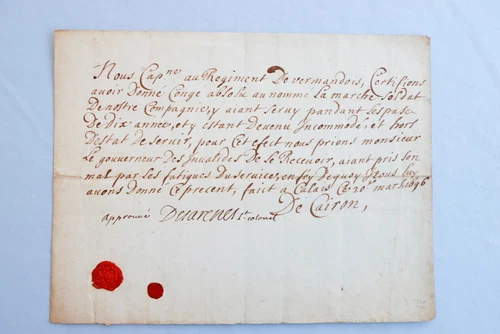 Nous Cap.ne au Regiment De vermandois, Certifions
auoir Donné Congé absolu au nommé la marche soldat
De nostre Compagnie, y aiant seruy pandant l'espase
De Dix années, et y estant Deuenu Incommodé, et hors
D'estat de seruir, pour Cet efect nous prions monsieur
Le gouuerneur Des Inualides De Le Receuoir, aiant pris son
mal par les fatigues du seruice, en foy Dequoy nous luy
auons Donné Ce precent, faict a Calais Ce 20e mars 1696
De Cairon,
approuué Desarenes Lt colonel